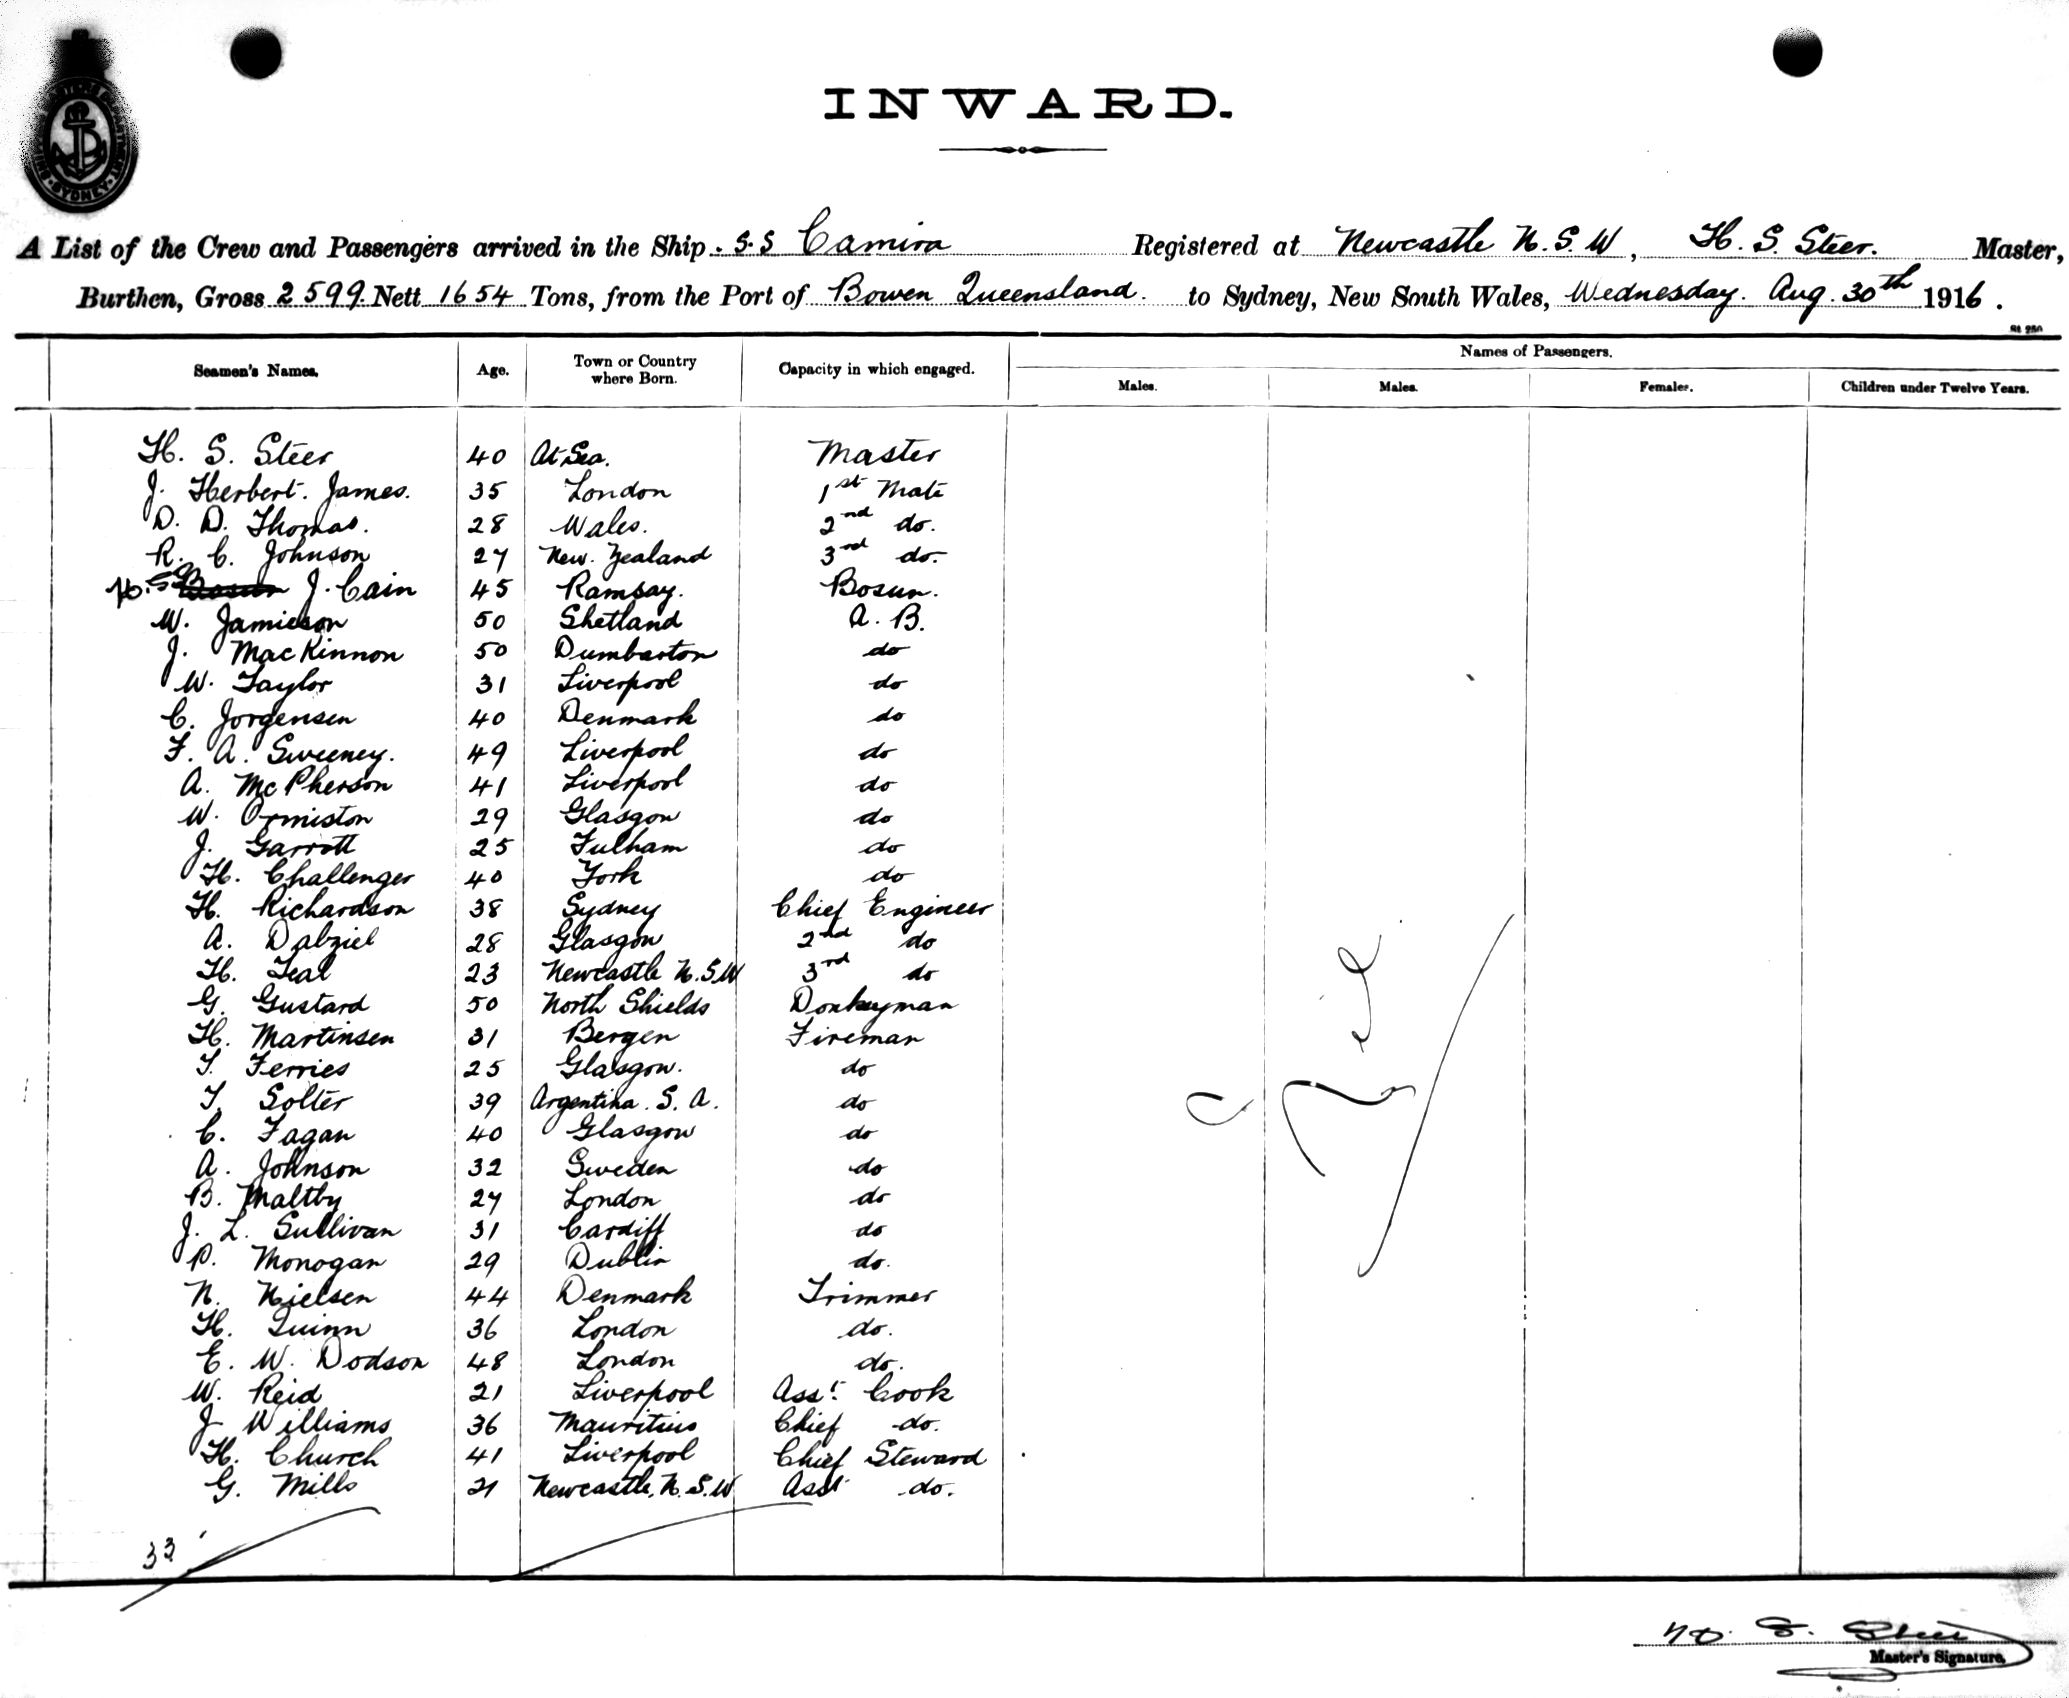 INWARD.
SYDNEY
A List of the Crew and Passengers arrived in the Ship S.S Camira Registered at Newcastle N.S.W, H. S. Steer. Master,
Burthen, Gross 2599 Nett 1654 Tons, from the Port of Bowen Queensland. to Sydney, New South Wales, Wednesday. Aug. 30th 1916.
St 250
Seamen's Names. Age. Town or Country where Born. Capacity in which engaged. Names of Passengers.
Males. Males. Females. Children under Twelve Years.
H. S. Steer 40 At Sea. Master
J. Herbert. James. 35 London 1st Mate
D. D. Thomas. 28 Wales. 2nd do.
R. C. Johnson 27 New. Zealand 3rd do.
J. Cain 45 Ramsay. Bosun.
W. Jamieson 50 Shetland A. B.
J. MacKinnon 50 Dumbarton do
W. Taylor 31 Liverpool do
C. Jorgensen 40 Denmark do
F. A. Sweeney. 49 Liverpool do
A. McPherson 41 Liverpool do
W. Ormiston 29 Glasgow do
J. Garrott 25 Fulham do
H. Challenger 40 York do
H. Richardson 38 Sydney Chief Engineer
A. Dalziel 28 Glasgow 2nd do
H. Teal 23 Newcastle N.S.W 3rd do
G. Gustard 50 North Shields Donkeyman
H. Martinsen 31 Bergen Fireman
T. Ferries 25 Glasgow. do
T. Solter 39 Argentina. S. A. do
C. Fagan 40 Glasgow do
A. Johnson 32 Sweden do
B. Maltby 27 London do
J. L. Sullivan 31 Cardiff do
P. Monogan 29 Dublin do.
N. Nielsen 44 Denmark Trimmer
H. Quinn 36 London do.
E. W. Dodson 48 London do.
W. Reid 21 Liverpool Asst. Cook
J Williams 36 Mauritius Chief do.
H. Church 41 Liverpool Chief Steward
G. Mills 21 Newcastle. N. S. W Asst do.
33
H. S. Steer
Master's Signature.